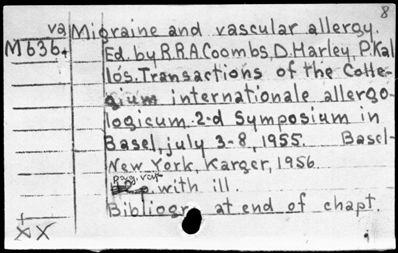 8
va Migraine and vascular allergy.
M636. Ed. by R.R.A Coombs, D. Harley, P. Kal
lós. Transactions of the Colle-
gium internationale allergo-
logicum. 2-d Symposium in
Basel, july 3-8, 1955. Basel-
New York, Karger, 1956.
pag. var. p. with ill.
Bibliogr. at end of chapt.
XX